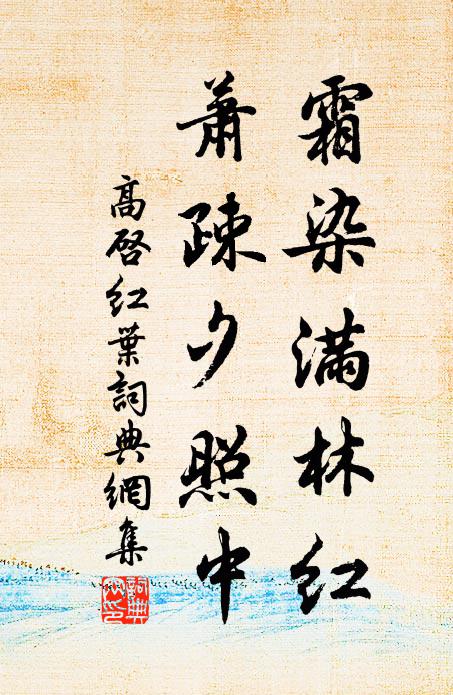 霜染满林红
萧疎夕照中
高启红叶词典网集